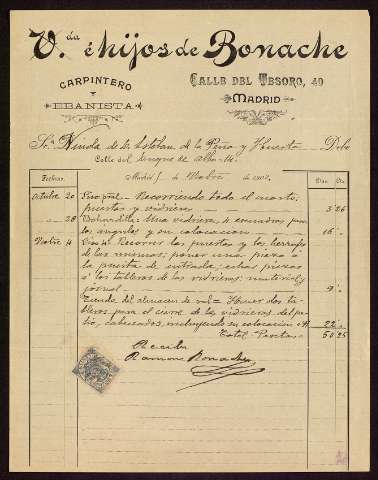 V.da é hijos de Bonache
CARPINTERO
Y
EBANISTA
CALLE DEL TESORO, 40
MADRID
Sra Viuda de de la Peña y Debe
Calle del Duque de Alba 14.
Fechas. Madrid de de 190 Ptas. Cts.
Octubre 20 Piso pral = Recorriendo todo el cuarto,
puertas y vidrieras 3 25
28 Bohardilla: Una vidriera, 4 escuadras, para
los angulos y su colocacion 16
4 Recorrer las puertas y los herrajes
de las mismas; poner una pieza á
la puerta de entrada; echar piezas
á los talleros de las vidrieras; material y
jornal 9
Tienda del almacen de = Hacer dos ta-
bleros para el cierre de la vidrieras del pa-
tio, cabeceados, incluyendo su colocacion 22
Total Pesetas 50 25
Recibí
Ramona Bonache